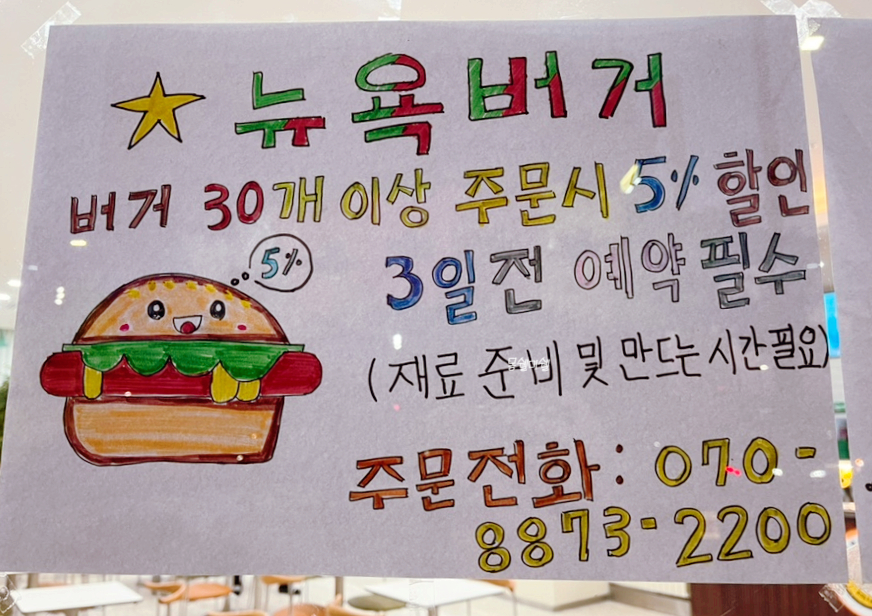 뉴욕버거
버거 30개 이상 주문시 5% 할인
5%
3일전 예약 필수
(재료 준비 및 만드는 시간필요)
주문전화: 070-
8873-2200